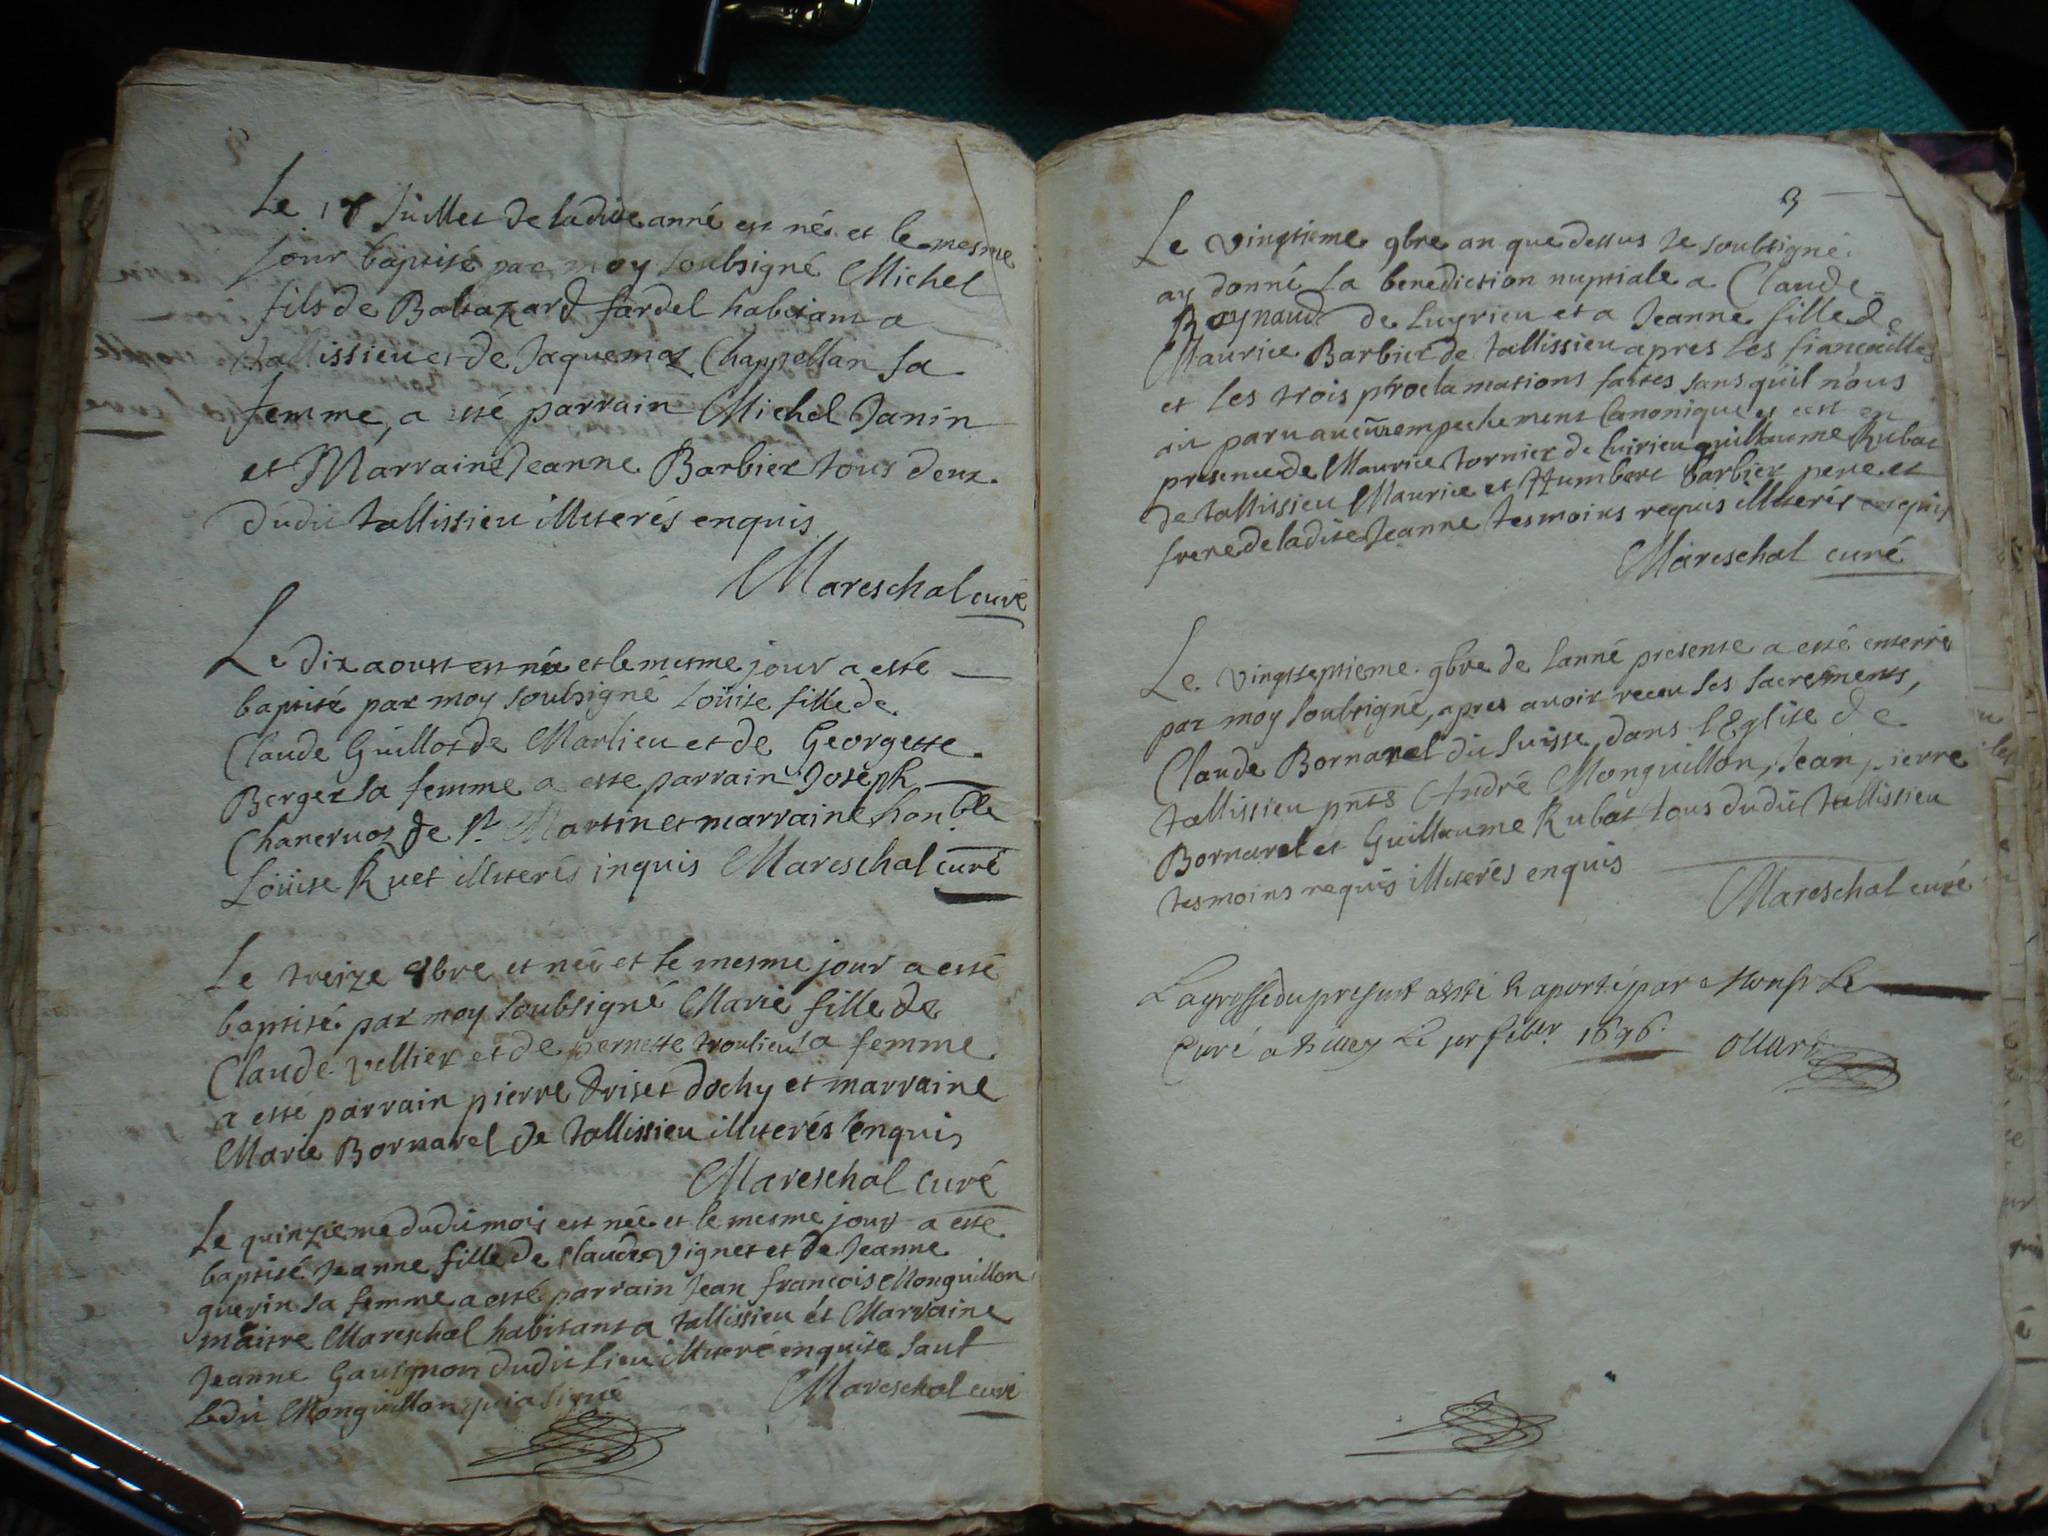 Le 18 Juillet de ladite anné est né et le mesme
jour baptisé par moy soubsigné Michel
fils de Baltazard fardel habitant a
tallissieu et de Jaquemaz Chappellan sa
femme, a esté parrain Michel Janin
et Marraine Jeanne Barbier tous deux
dudit tallissieu illiterés enquis
Mareschal curé
Le dix aoust est née et le mesme jour a esté
baptisé par moy soubsigné Loüise fille de
Claude Guillot de Marlieu et de Georgette
Berger sa femme a este parrain Joseph
de St Martin et marraine honble
Loüise Ruet illiterés inquis Mareschal curé
Le treize 8bre est née et le mesme jour a esté
baptisé par moy soubsigné Marie fille de
Claude vellier et de pernette troulieu sa femme
a esté parrain pierre driset dochy et marraine
Marie Bornarel de tallissieu illiterés enquis
Mareschal curé
Le quinzieme dudit mois est née et le mesme jour a esté
baptisé Jeanne fille de Claude vignet et de Jeanne
guerin sa femme a esté parrain Jean francois Monguillon
maitre Mareschal habitant a tallissieu et Marraine
Jeanne Gauignon dudit lieu illiteré enquise sauf
ledit Monguillon qui a signé Mareschal curé
3
Le vingtieme 9bre an que dessus Je soubsigné
ay donné la benediction nuptiale a Claude
Raynaud de Luyrieu et a Jeanne fille de
Maurice Barbier de tallissieu apres les fiancailles
et les trois proclamations faites sans quil nous
ait paru aucun empechement Canonique et cest en
presence de Maurice tornier de Luirieu guillaume Rubat
de tallissieu Maurice et Humbert barbier pere et
frere de ladite Jeanne tesmoins requis illiterés enquis
Mareschal curé
Le vingtseptieme 9bre de lanné presente a esté enterré
par moy soubsigné, apres auoir receu ses sacrements,
Claude Bornarel du suisse, dans l'Eglise de
tallissieu pnts André Monguillon, Jean pierre
Bornarel et Guillaume Rubat tous dudit tallissieu
tesmoins requis illiterés enquis
Mareschal curé
La grosse du present a esté raporté par Monsr Le
Curé a Belley Le 1er feber 1696